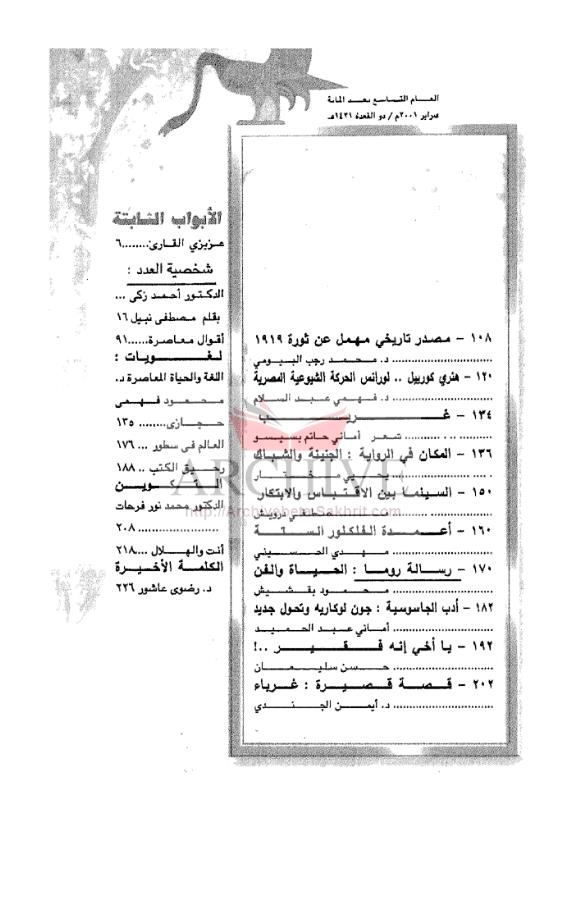 العام التاسع بعد المائة
فبراير ٢٠٠١م / ذو القعدة ١٤٢١هـ
١٠٨ - مصدر تاريخي مهمل عن ثورة ١٩١٩
د. محمد رجب البيومي
١٢٠ - هنري كورييل .. لورانس الحركة الشيوعية المصرية
د. فهمي عبد السلام
١٣٤ - غربـ
شعر أماني حاتم بسيسو
١٣٦ - المكان في الرواية : الجنينة والشباك
يحيي مختار
١٥٠ - السينما بين الاقتباس والابتكار
مصطفي درويش
١٦٠ - أعمدة الفلكلور الستة
مهدي الحسيني
١٧٠ - رسالة روما : الحياة والفن
محمود بقشيش
١٨٢ - أدب الجاسوسية : جون لوكاريه وتحول جديد
أماني عبد الحميد
١٩٢ - يا أخي إنه فقير ..!
حسن سليمان
٢٠٢ - قصة قصيرة : غرباء
د. أيمن الجندي
الأبواب الثابتة
عزيزي القارئ........٦
شخصية العدد :
الدكتور أحمد زكى ...
بقلم مصطفى نبيل ١٦
أقوال معاصرة......٩١
لغويات :
اللغة والحياة المعاصرة د.
محمود فهمى
حجازى ........ ١٣٥
العالم فى سطور ... ١٧٦
رحيق الكتب .. ١٨٨
التكوين
الدكتور محمد نور فرحات
.................... ٢٠٨
أنت والهلال ...٢١٨
الكلمة الأخيرة
د. رضوى عاشور ٢٢٦
ARCHIVE
http://Archivebeta.Sakhrit.com